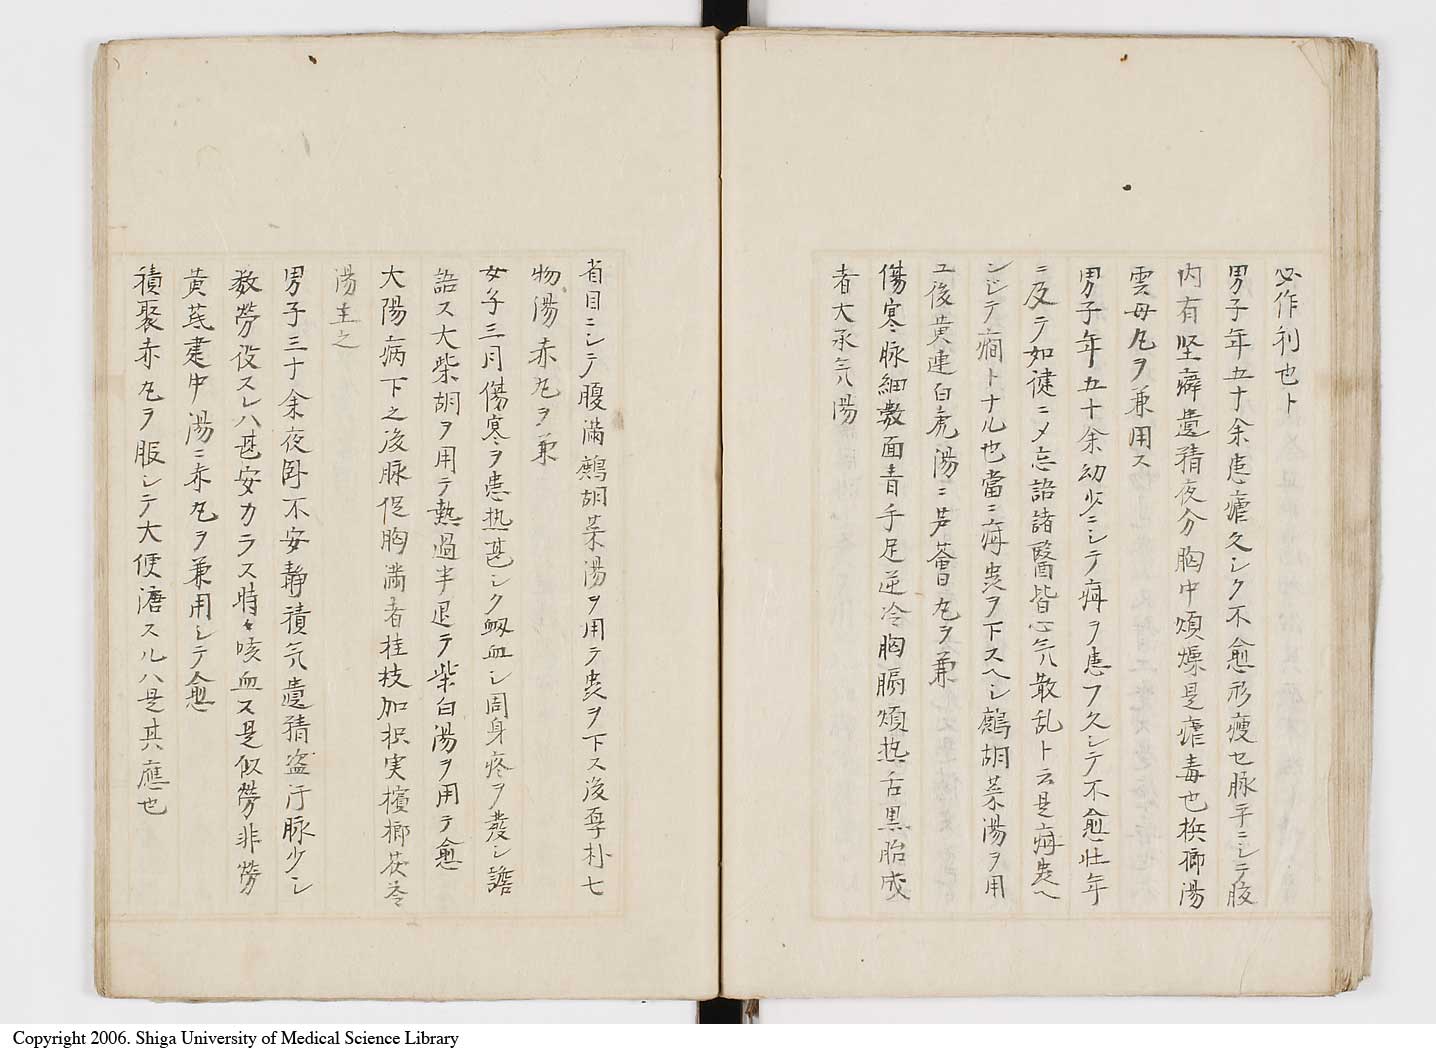 必作利也ト
男子年五十余患瘧久シク不愈形瘦セ脉平ニシテ腹
内有坚癖遺精夜分胸中煩燥是瘧毒也梹榔湯
雲母丸ヲ兼用ス
男子年五十余幼少ニシテ痗ヲ患フ久シテ不愈壮年
ニ及テ如健ニメ忘語諸醫皆心気散乱ト云是痗虫ヘ
ンシテ癇トナル也當ニ痗虫ヲ下スヘシ鷓胡菜湯ヲ用
工後黄連白虎湯ニ芦薈丸ヲ兼
傷寒脉細数面青手足逆冷胸膈煩热舌黒胎成
者大承气湯
省目ニシテ腹満鷓胡菜湯ヲ用テ虫ヲ下ス後厚朴七
物湯赤丸ヲ兼
女子三月傷寒ヲ患热甚シク衂血シ周身疼ヲ発シ譫
語ス大柴胡ヲ用テ熱過半退テ柴白湯ヲ用テ愈
大陽病下之後脉促胸満者桂枝加枳実檳榔茯苓
湯主之
男子三十余夜卧不安静積気遺精盗汗脉少シ
数勞役スレハ甚安カラス時々咳血ス是似勞非勞
黄芪建中湯ニ赤丸ヲ兼用シテ愈
積聚赤丸ヲ服シテ大便溏スルハ是其應也
Copyright 2006. Shiga University of Medical Science Library